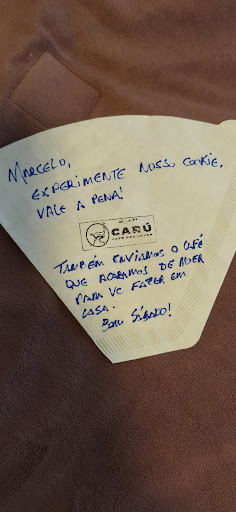 MARCELO,
EXPERIMENTE NOSSO COOKIE,
VALE A PENA!
CARÚ
TAMBÉM ENVIAMOS O CAFÉ
QUE ACABAMOS DE MOER
PARA VC FAZER EM
CASA.
BOM SÁBADO!